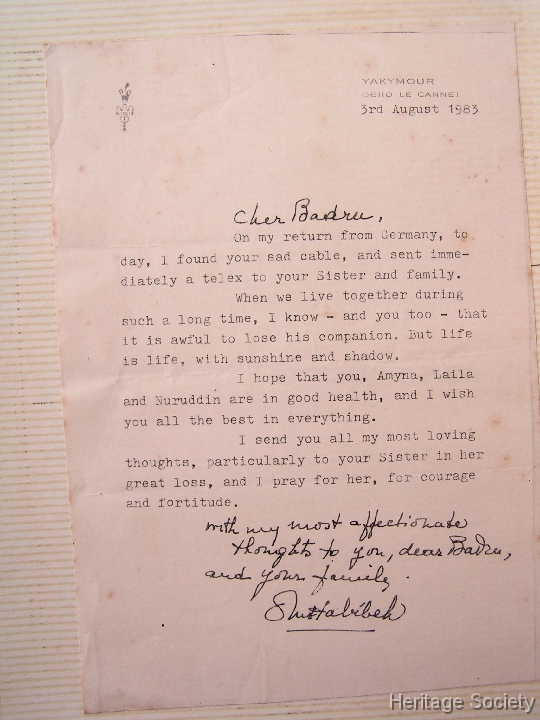 YAKYMOUR
06110 LE CANNET
3rd August 1983
Cher Badru,
On my return from Germany, to
day, I found your sad cable, and sent imme-
diately a telex to your Sister and family.
When we live together during
such a long time, I know - and you too - that
it is awful to lose his companion. But life
is life, with sunshine and shadow.
I hope that you, Amyna, Laila
and Nuruddin are in good health, and I wish
you all the best in everything.
I send you all my most loving
thoughts, particularly to your Sister in her
great loss, and I pray for her, for courage
and fortitude.
with my most affectionate
thoughts to you, dear Badru,
and your family.
Heritage Society